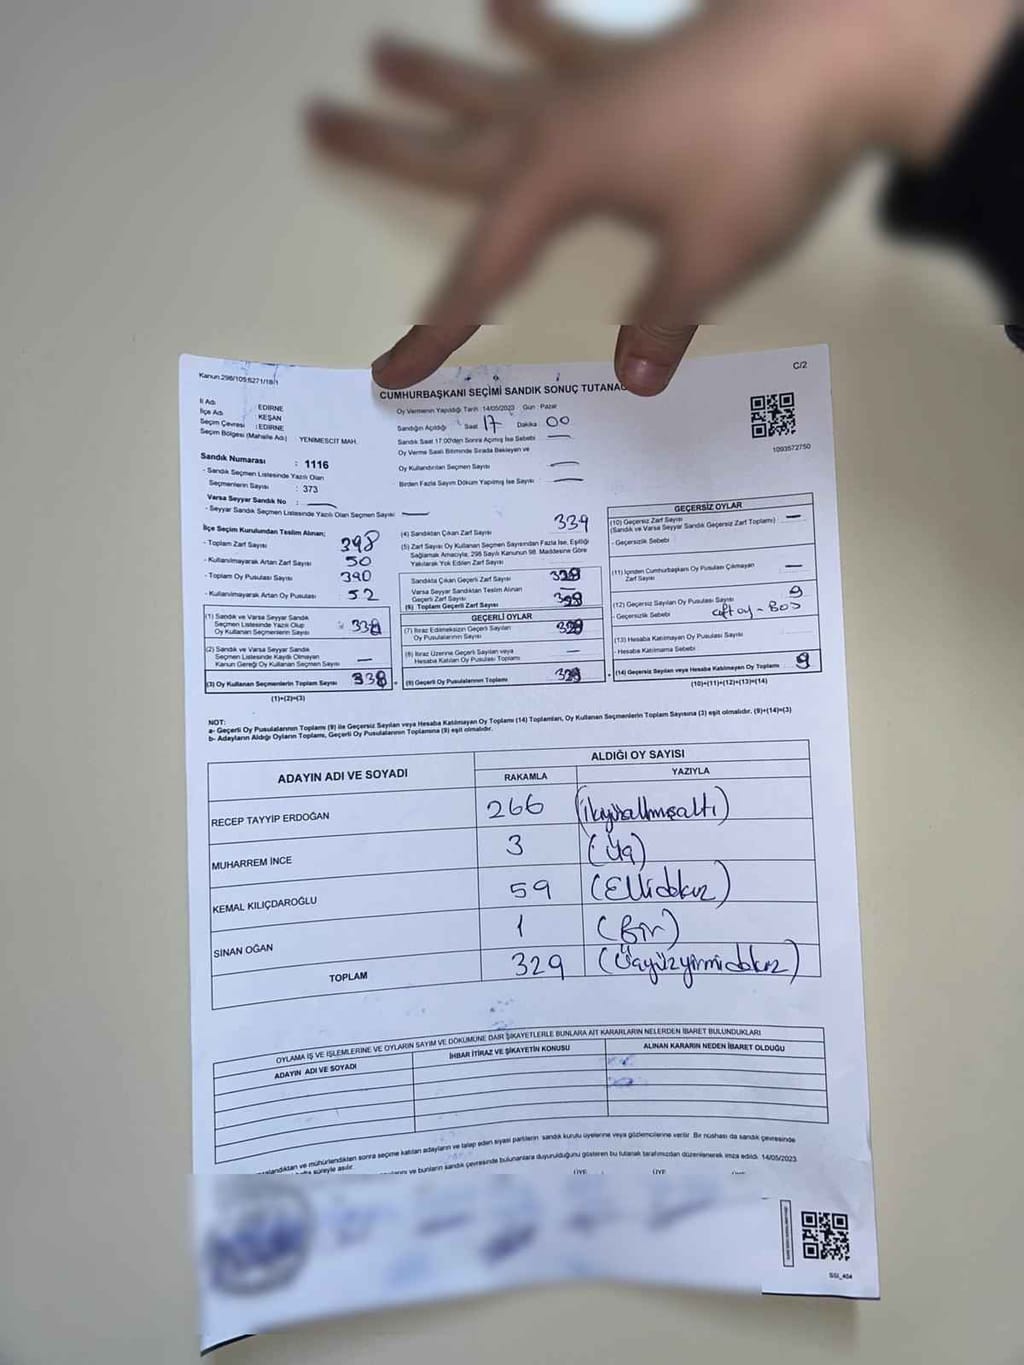 Kanun.298/105;6271/18/1
C/2
CUMHURBAŞKANI SEÇİMİ SANDIK SONUÇ
İl Adı : EDİRNE
İlçe Adı : KEŞAN
Seçim Çevresi : EDİRNE
Seçim Bölgesi (Mahalle Adı) : YENİMESCİT MAH.
Oy Vermenin Yapıldığı Tarih : 14/05/2023 Gün : Pazar
Sandığın Açıldığı Saat 17 Dakika 00
Sandık Saat 17:00'den Sonra Açılmış İse Sebebi —
Oy Verme Saati Bitiminde Sırada Bekleyen ve
Oy Kullandırılan Seçmen Sayısı —
Birden Fazla Sayım Döküm Yapılmış İse Sayısı —
1093572750
Sandık Numarası : 1116
- Sandık Seçmen Listesinde Yazılı Olan
Seçmenlerin Sayısı : 373
Varsa Seyyar Sandık No : —
- Seyyar Sandık Seçmen Listesinde Yazılı Olan Seçmen Sayısı —
İlçe Seçim Kurulundan Teslim Alınan;
- Toplam Zarf Sayısı
- Kullanılmayarak Artan Zarf Sayısı 50
- Toplam Oy Pusulası Sayısı 390
- Kullanılmayarak Artan Oy Pusulası 52
(1) Sandık ve Varsa Seyyar Sandık
Seçmen Listesinde Yazılı Olup
Oy Kullanan Seçmenlerin Sayısı : 338
(2) Sandık ve Varsa Seyyar Sandık
Seçmen Listesinde Kaydı Olmayan
Kanun Gereği Oy Kullanan Seçmen Sayısı —
(3) Oy Kullanan Seçmenlerin Toplam Sayısı 338
(1)+(2)=(3)
(4) Sandıktan Çıkan Zarf Sayısı 339
(5) Zarf Sayısı Oy Kullanan Seçmen Sayısından Fazla İse, Eşitliği
Sağlamak Amacıyla, 298 Sayılı Kanunun 98. Maddesine Göre
Yakılarak Yok Edilen Zarf Sayısı
Sandıkta Çıkan Geçerli Zarf Sayısı
Varsa Seyyar Sandıktan Teslim Alınan
Geçerli Zarf Sayısı —
(6) Toplam Geçerli Zarf Sayısı
GEÇERLİ OYLAR
(7) İtiraz Edilmeksizin Geçerli Sayılan
Oy Pusulalarının Sayısı 329
(8) İtiraz Üzerine Geçerli Sayılan veya
Hesaba Katılan Oy Pusulası Toplamı —
(9) Geçerli Oy Pusulalarının Toplamı 329
GEÇERSİZ OYLAR
(10) Geçersiz Zarf Sayısı —
(Sandık ve Varsa Seyyar Sandık Geçersiz Zarf Toplamı)
- Geçersizlik Sebebi
(11) İçinden Cumhurbaşkanı Oy Pusulası Çıkmayan
Zarf Sayısı —
(12) Geçersiz Sayılan Oy Pusulası Sayısı 9
- Geçersizlik Sebebi çift oy - BOŞ
(13) Hesaba Katılmayan Oy Pusulası Sayısı
- Hesaba Katılmama Sebebi
(14) Geçersiz Sayılan veya Hesaba Katılmayan Oy Toplamı 9
(10)+(11)+(12)+(13)=(14)
NOT:
a- Geçerli Oy Pusulalarının Toplamı (9) ile Geçersiz Sayılan veya Hesaba Katılmayan Oy Toplamı (14) Toplamları, Oy Kullanan Seçmenlerin Toplam Sayısına (3) eşit olmalıdır. (9)+(14)=(3)
b- Adayların Aldığı Oyların Toplamı, Geçerli Oy Pusulalarının Toplamına (9) eşit olmalıdır.
ADAYIN ADI VE SOYADI ALDIĞI OY SAYISI
RAKAMLA YAZIYLA
RECEP TAYYİP ERDOĞAN 266 (İkiyüzaltmışaltı)
MUHARREM İNCE 3 (Üç)
KEMAL KILIÇDAROĞLU 59 (Ellidokuz)
SİNAN OĞAN 1 (Bir)
TOPLAM 329 (Üçyüzyirmidokuz)
OYLAMA İŞ VE İŞLEMLERİNE VE OYLARIN SAYIM VE DÖKÜMÜNE DAİR ŞİKAYETLERLE BUNLARA AİT KARARLARIN NELERDEN İBARET BULUNDUKLARI
ADAYIN ADI VE SOYADI İHBAR İTİRAZ VE ŞİKAYETİN KONUSU ALINAN KARARIN NEDEN İBARET OLDUĞU
ve mühürlendikten sonra seçime katılan adayların ve talep eden siyasi partilerin sandık kurulu üyelerine veya gözlemcilerine verilir. Bir nüshası da sandık çevresinde
süreyle asılır.
ve bunların sandık çevresinde bulunanlara duyurulduğunu gösteren bu tutanak tarafımızdan düzenlenerek imza edildi. 14/05/2023
ÜYE ÜYE
SSI_404